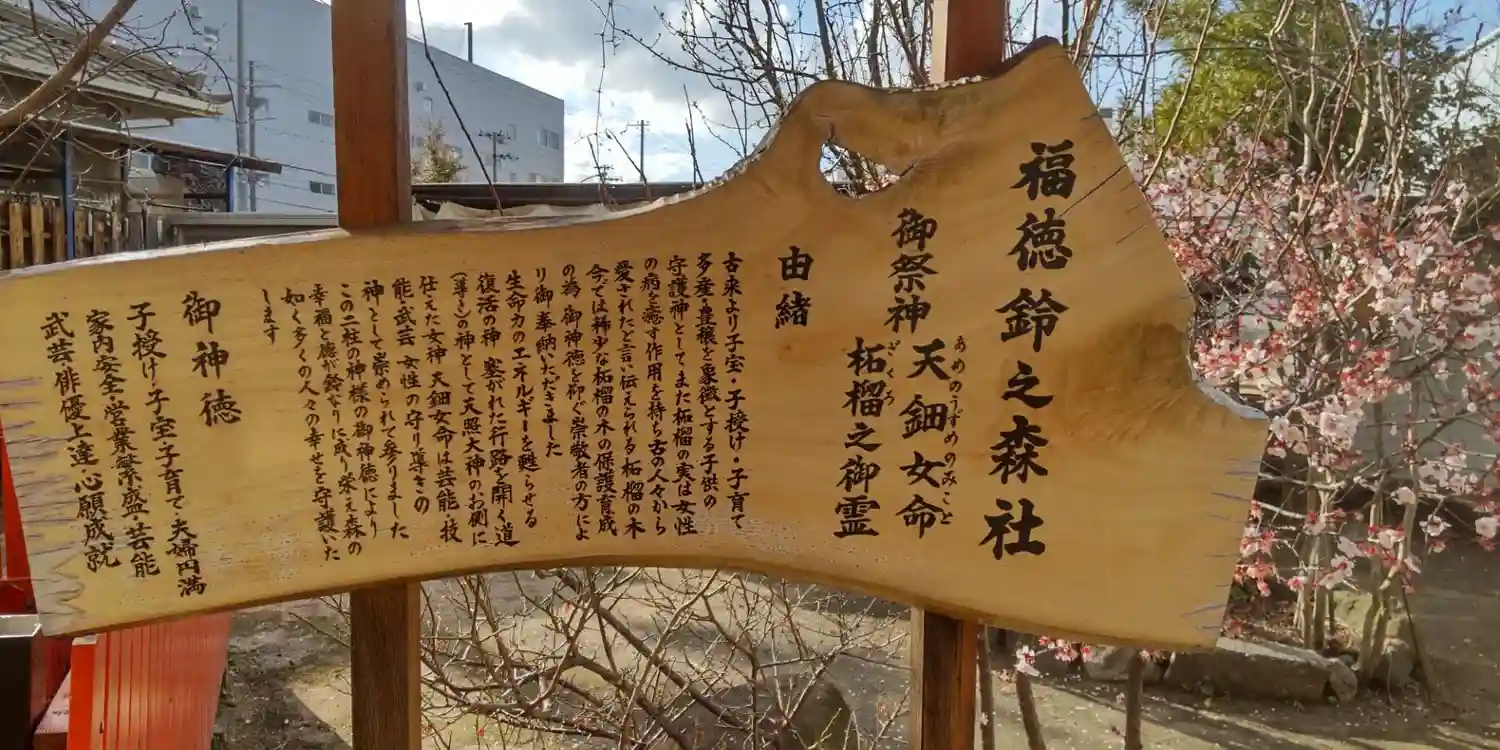 福徳鈴之森社
御祭神 天鈿女命
あめのうずめのみこと
柘榴之御霊
ざくろ
由緒
古来より子宝・子授け・子育て
多産・豊穣を象徴とする子供の
守護神としてまた柘榴の実は女性
の病を癒す作用を持ち古の人々から
愛されたと言い伝えられる柘榴の木
今では稀少な柘榴の木の保護育成
の為、御神徳を仰ぐ崇敬者の方によ
り御奉納いただきました
生命力のエネルギーを甦らせる
復活の神 塞がれた行路を開く道
(導キ)の神として天照大神のお側に
仕えた女神 天鈿女命は芸能・技
能・武芸 女性の守り導きの
神として崇められて参りました
この二柱の神様の御神徳により
幸福と徳が鈴なりに成り栄え森の
如く多くの人々の幸せを守護いた
します
御神徳
子授け・子宝・子育て・夫婦円満
家内安全・営業繁盛・芸能
武芸・俳優上達・心願成就